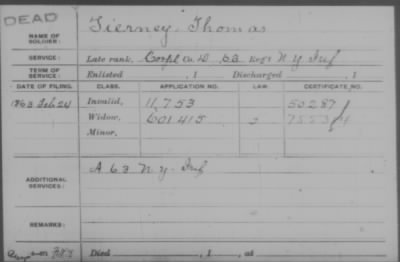 DEAD
NAME OF SOLDIER: Tierney, Thomas
SERVICE: Late rank, Corpl Co. D, 63 Reg't N.Y. Inf
TERM OF SERVICE: Enlisted , 1 Discharged , 1
DATE OF FILING. CLASS. APPLICATION NO. LAW. CERTIFICATE NO.
1863 Feb 24 Invalid, 11,753 50287
Widow, 601415
Minor,
ADDITIONAL SERVICES: A 63 N.Y. Inf
REMARKS:
Died , 1 , at